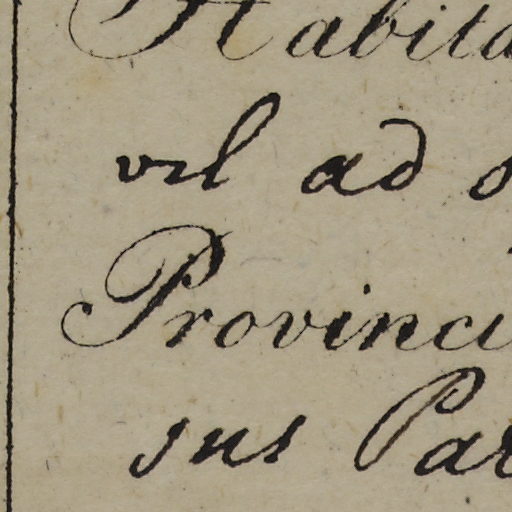 Habita
vel ad
Provinci
sus Par